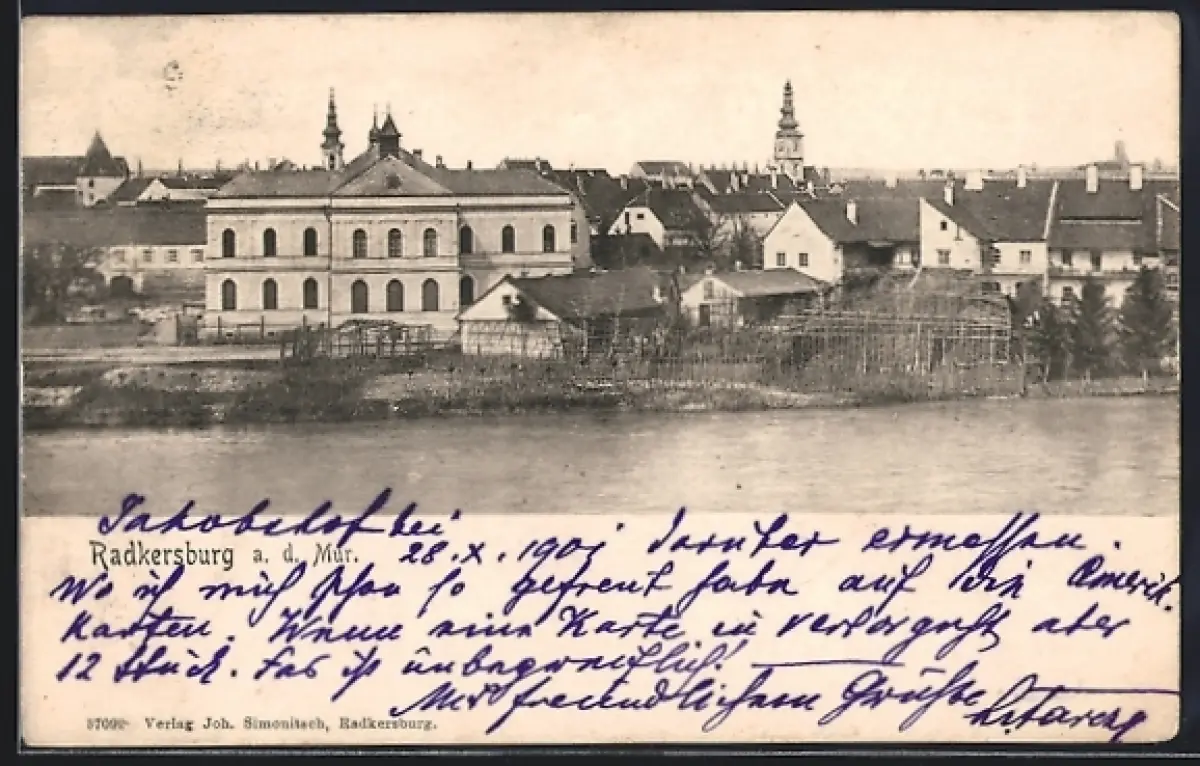 Jakobsdorf bei
Radkersburg a. d. Mur. 28. X. 1901 darüber ermessen.
Wo ich mich schon so gefreut habe auf die Amerik.
Karten. Wenn eine Karte in verloren geht aber
12 Stück. Das ist unbegreiflich!
Mit freundlichem Grüße
37092 Verlag Joh. Simonitsch, Radkersburg.